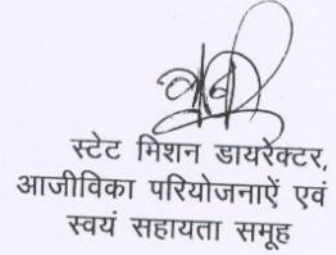 स्टेट मिशन डायरेक्टर,
आजीविका परियोजनाऐं एवं
स्वयं सहायता समूह